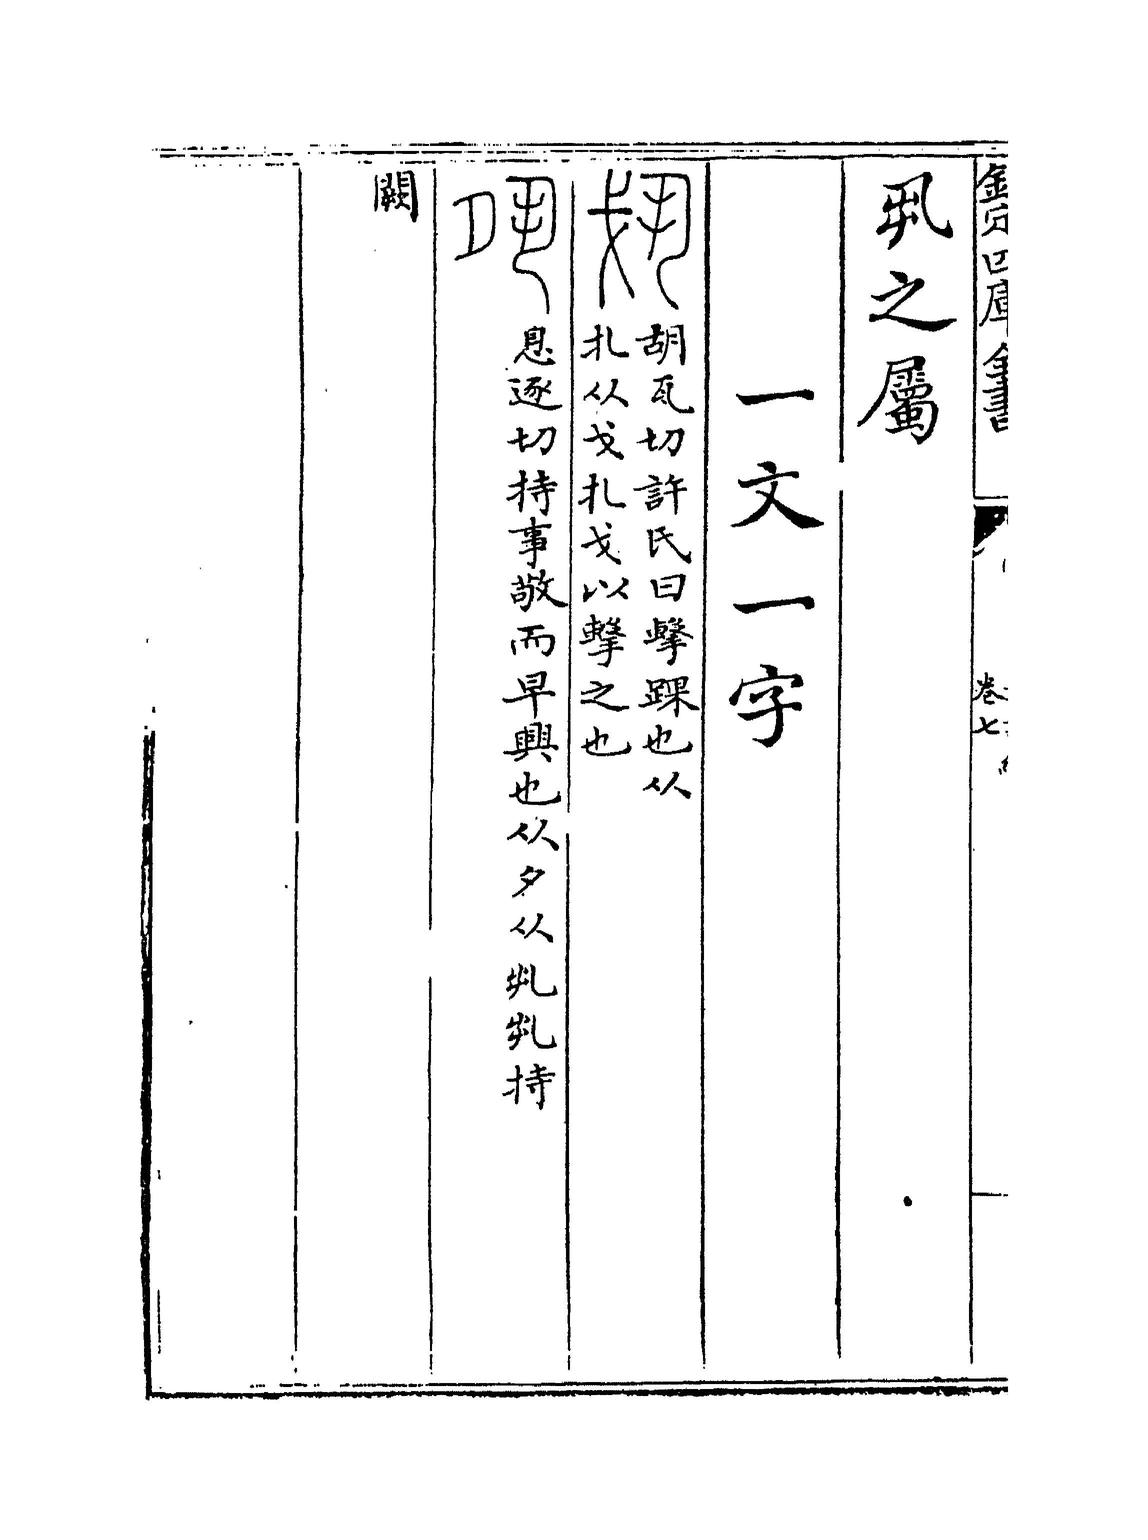 欽定四庫全書
卷七
丮之屬
一文一字
胡瓦切許氏曰擊踝也从
扎从戈扎戈以擊之也
息逐切持事敬而早興也从夕从丮丮持
闕